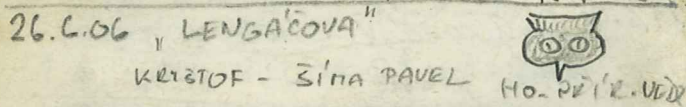 26.6.06 „LENGÁČOVA"
KRYŠTOF - ŠÍMA PAVEL HO-PŘÍR.VĚD